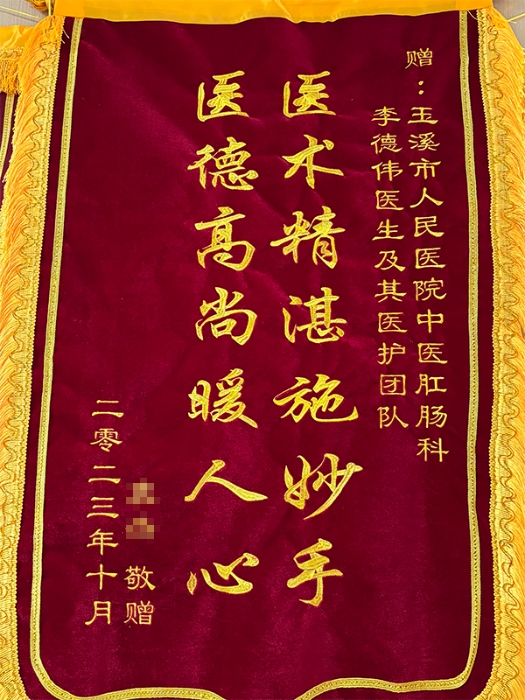 赠：玉溪市人民医院中医肛肠科
李德伟医生及其医护团队
医术精湛施妙手
医德高尚暖人心
敬赠
二零二三年十月